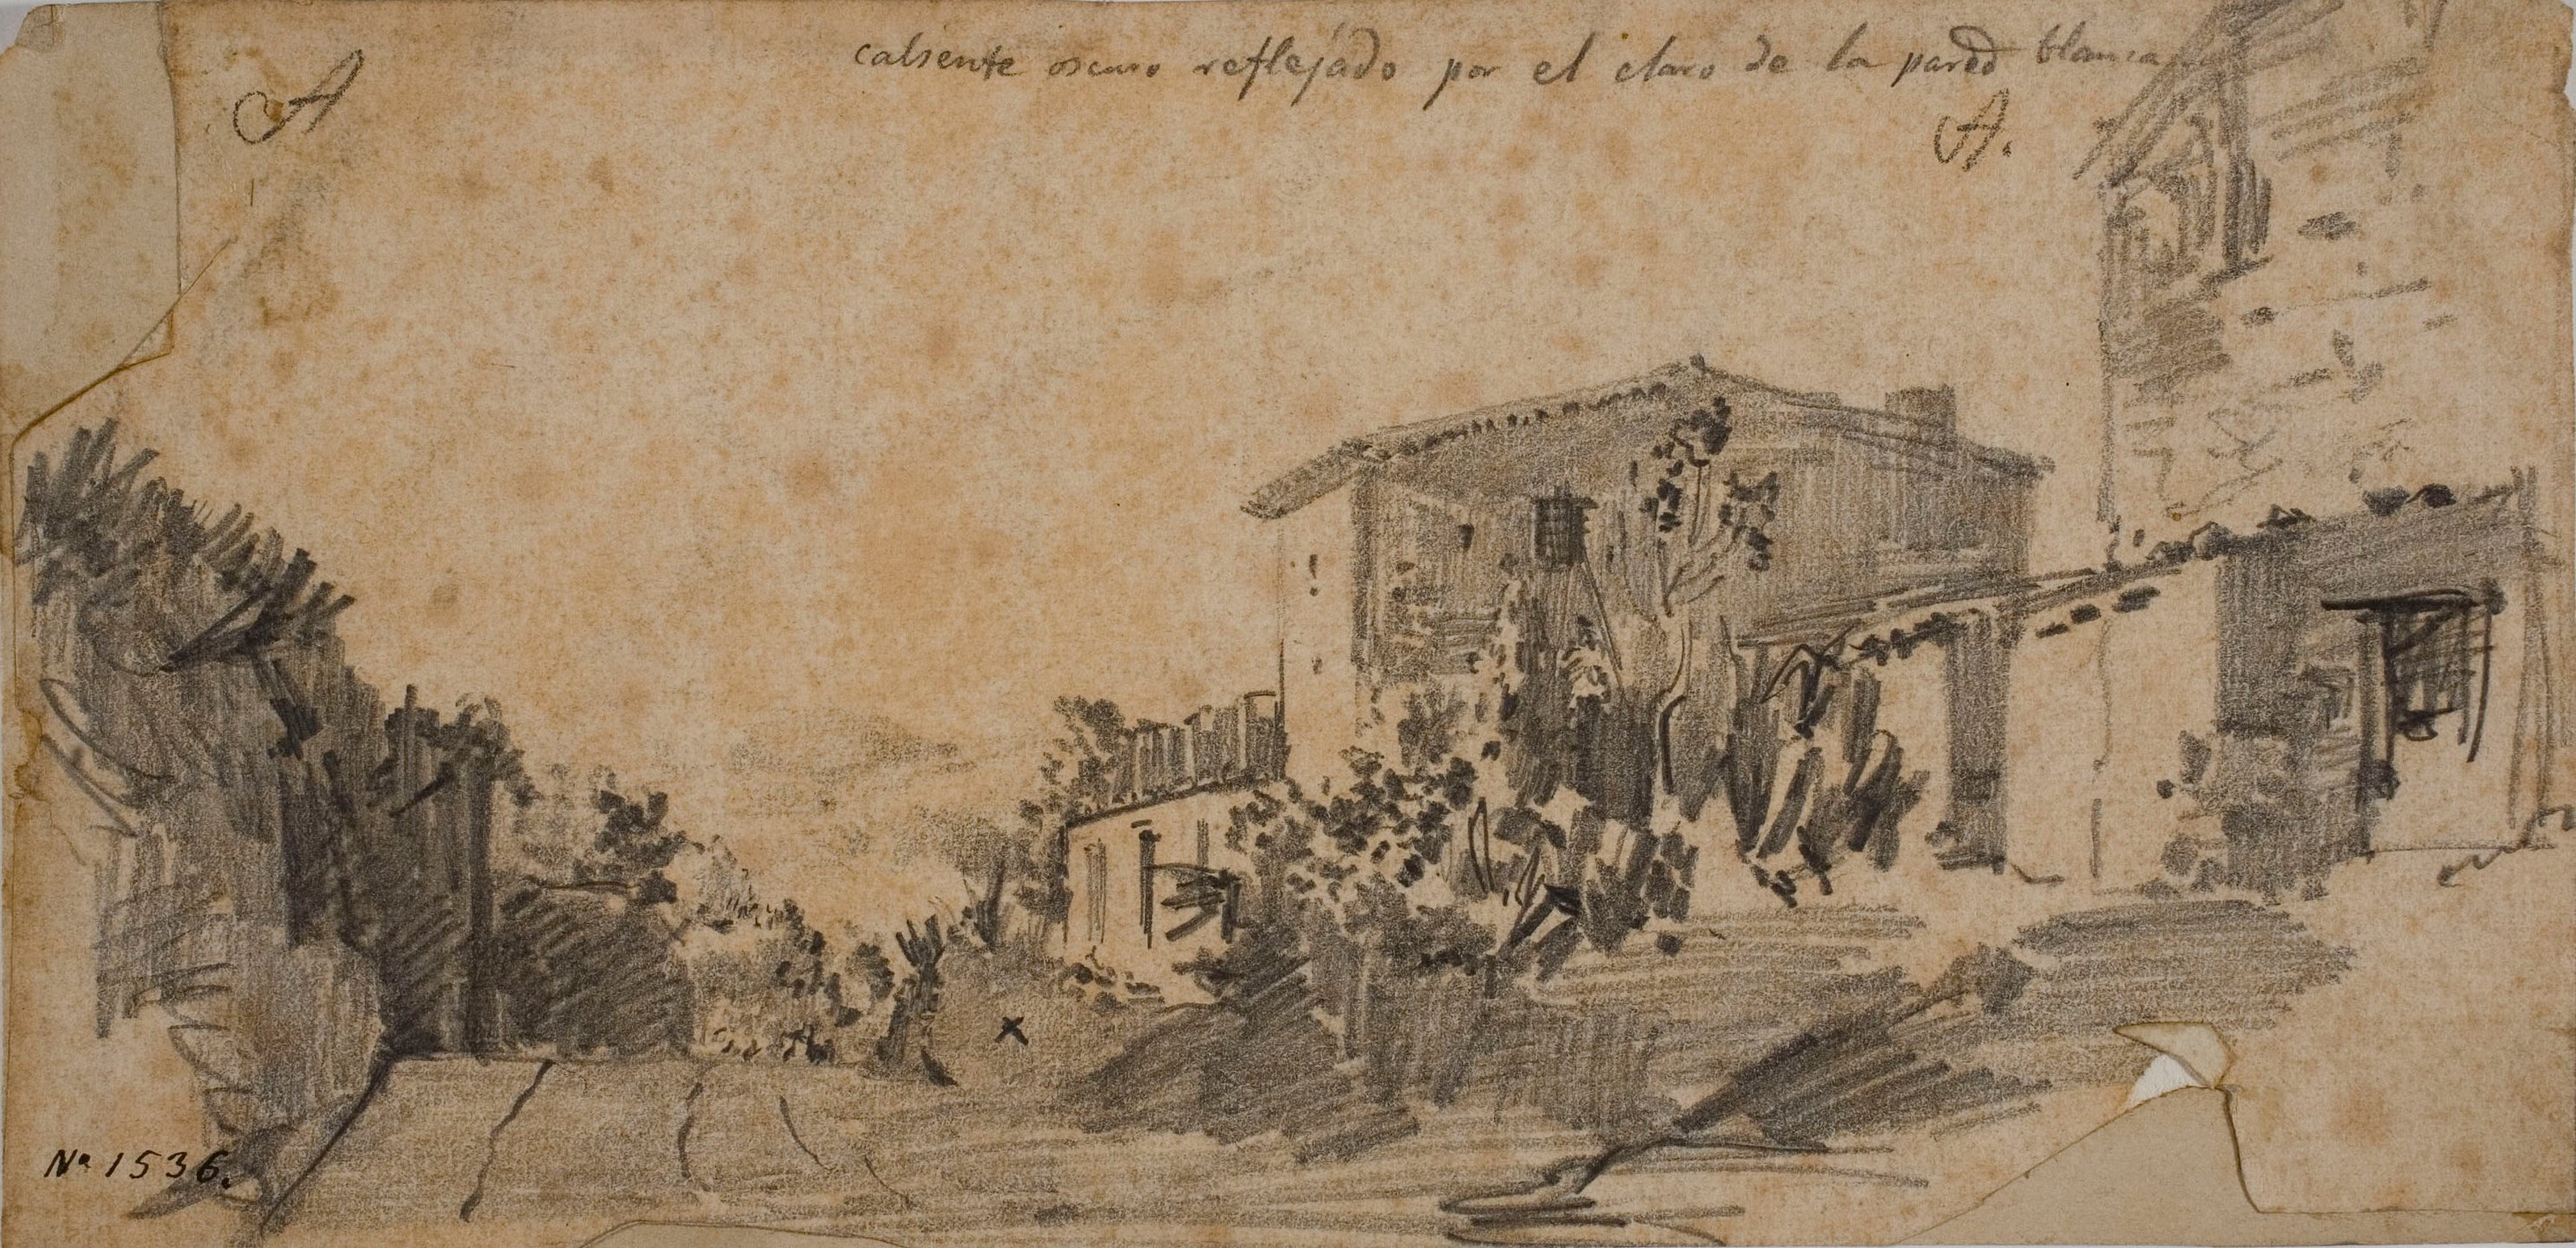 caliente oscuro reflejádo por el claro de la pared blanca
A
A.
x
Nº 1536.